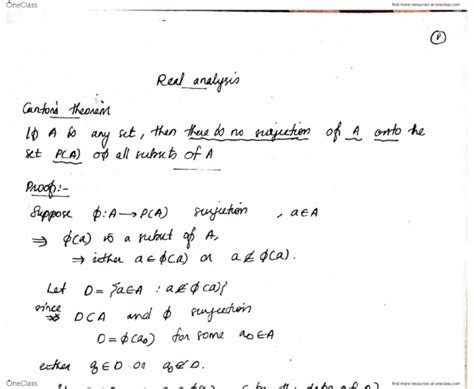 OneClass
find more resources at oneclass.com
Real analysis
Cantor's theorem
If A is any set, then there do no surjection of A onto the
set P(A) of all subsets of A
Proof:-
Suppose ϕ: A → P(A) surjection , a∈A
⇒ ϕ(a) is a subset of A,
⇒ either a ∈ ϕ(a) or a ∉ ϕ(a).
Let D = {a∈A : a∉ϕ(a)}
since D⊂A and ϕ surjection
D = ϕ(a₀) for some a₀∈A
either a₀∈D or a₀∉D.
OneClass
find more resources at oneclass.com